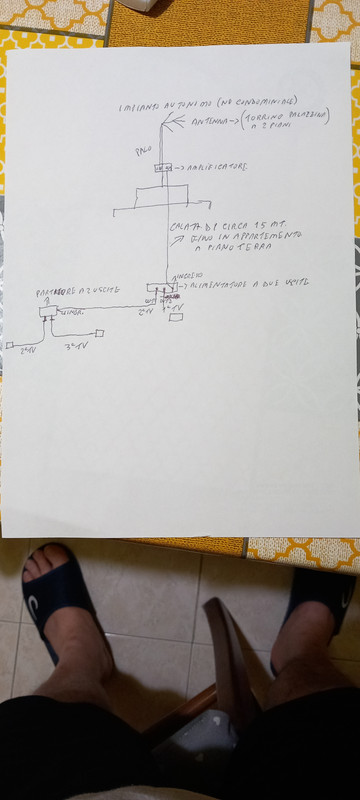 IMPIANTO AUTONOMO (NO CONDOMINIALE)
ANTENNA → (TORRINO PALAZZINA
A 2 PIANI
PALO
→ AMPLIFICATORE
CALATA DI CIRCA 15 MT.
FINO IN APPARTAMENTO
A PIANO TERRA
INGRESSO
→ ALIMENTATORE A DUE USCITE
PARTITORE A 2 USCITE
2°TV
1°TV
2°TV
3°TV